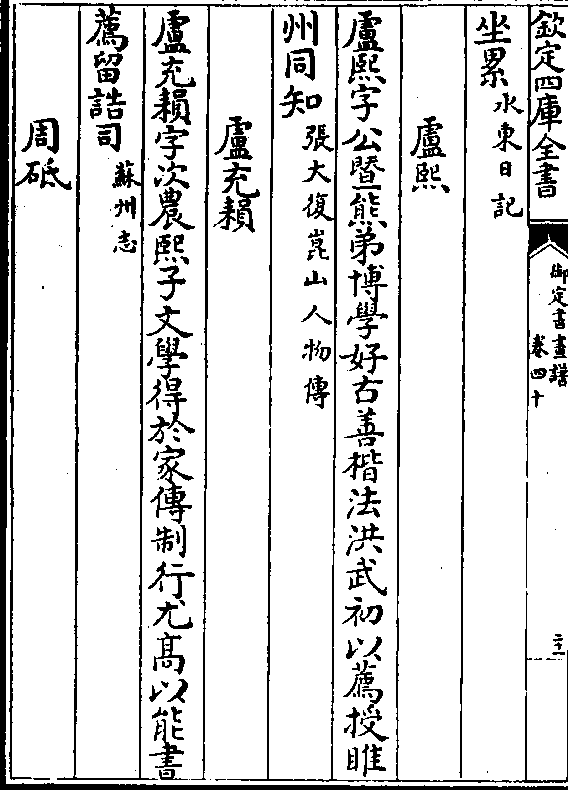 欽定四庫全書
御定書畫譜
卷四十
坐累水東日記
盧熙
盧熙字公暨熊弟博學好古善楷法洪武初以薦授睢
州同知張大復崑山人物傳
盧充頛
盧充頛字次農熙子文學得於家傳制行尤髙以能書
薦留誥司蘇州志
周砥